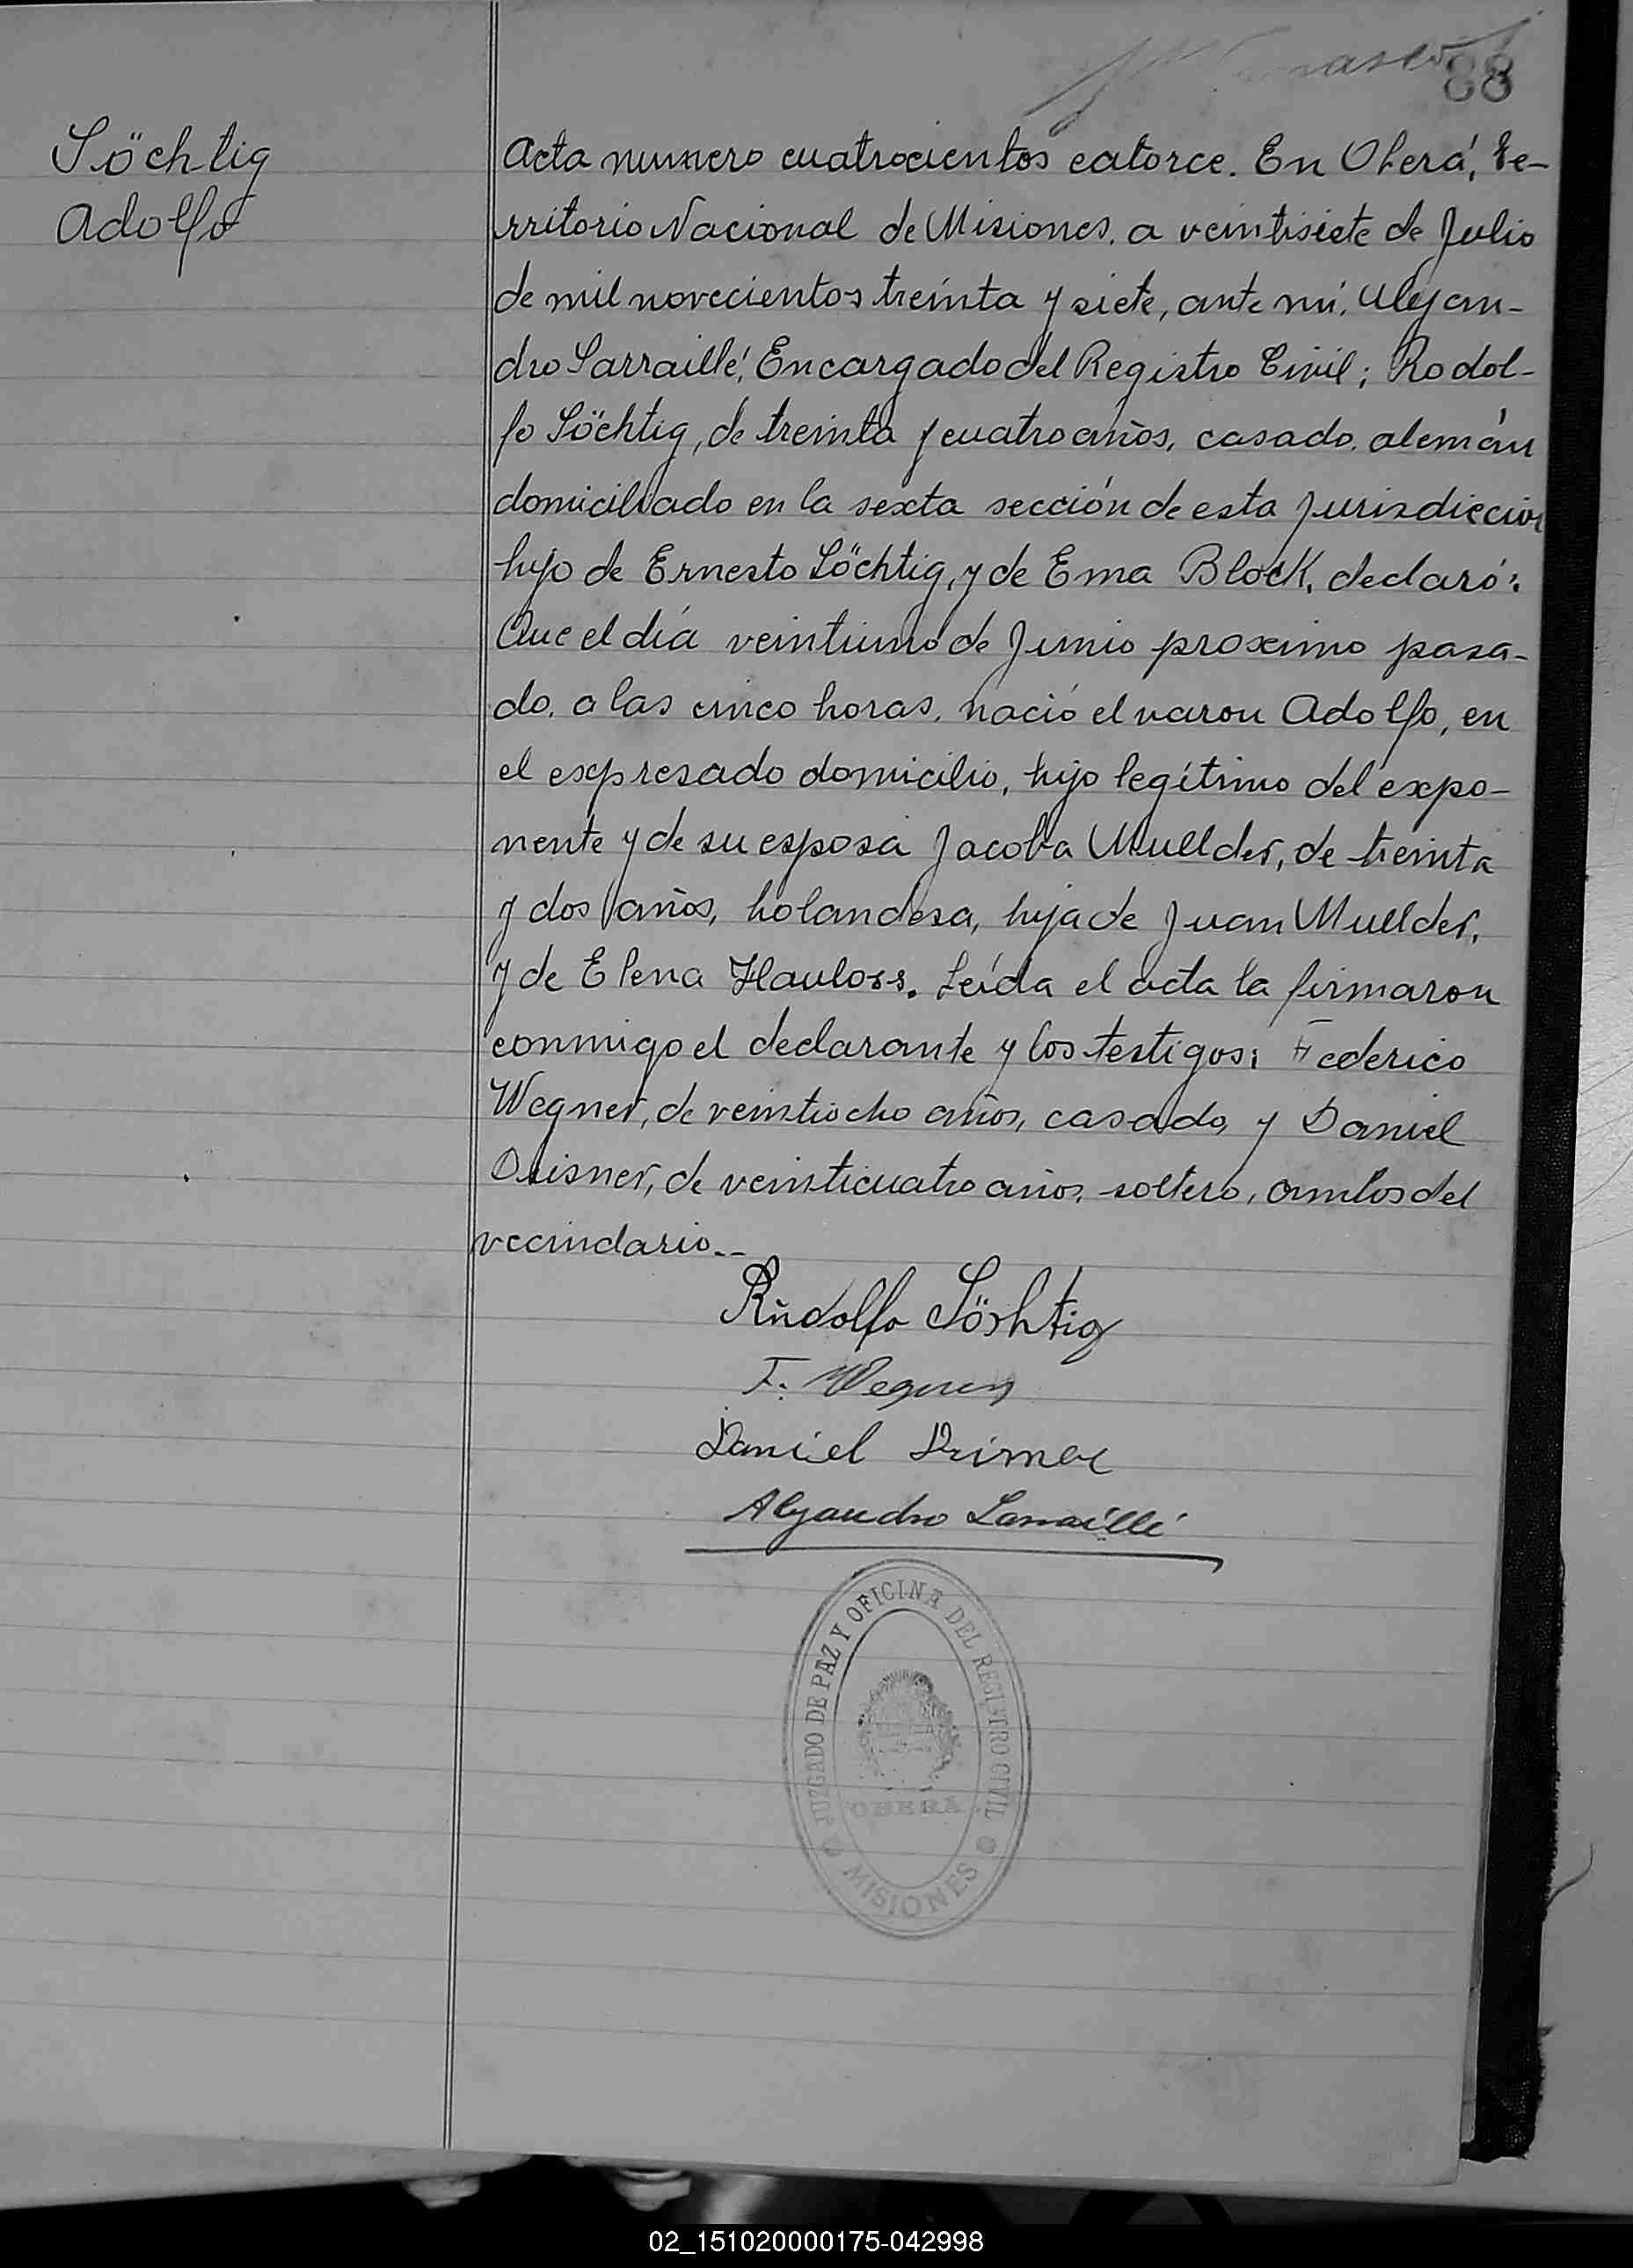 88
Söchtig
Adolfo
Acta numero cuatrocientos catorce. En Oberá, Te-
rritorio Nacional de Misiones, a veintisiete de Julio
de mil novecientos treinta y siete, ante mí, Alejan-
dro Sarraillé, Encargado del Registro Civil; Rodol-
fo Söchtig, de treinta y cuatro años, casado, alemán
domiciliado en la sexta sección de esta Jurisdiccion
hijo de Ernesto Söchtig, y de Ema Block, declaró:
Que el día veintiuno de Junio proximo pasa-
do, a las cinco horas, nació el varon Adolfo, en
el expresado domicilio, hijo legítimo del expo-
nente y de su esposa Jacoba Muellder, de treinta
y dos años, holandesa, hija de Juan Muellder,
y de Elena Hauloss. Leída el acta la firmaron
conmigo el declarante y los testigos: Federico
Wegner, de veintiocho años, casado, y Daniel
de veinticuatro años, soltero, ambos del
vecindario.--
Rudolfo Söchtig
F. Wegner
Daniel
Alejandro Sarraillé
JUZGADO DE PAZ Y OFICINA DEL REGISTRO CIVIL
OBERÁ
MISIONES
02_151020000175-042998